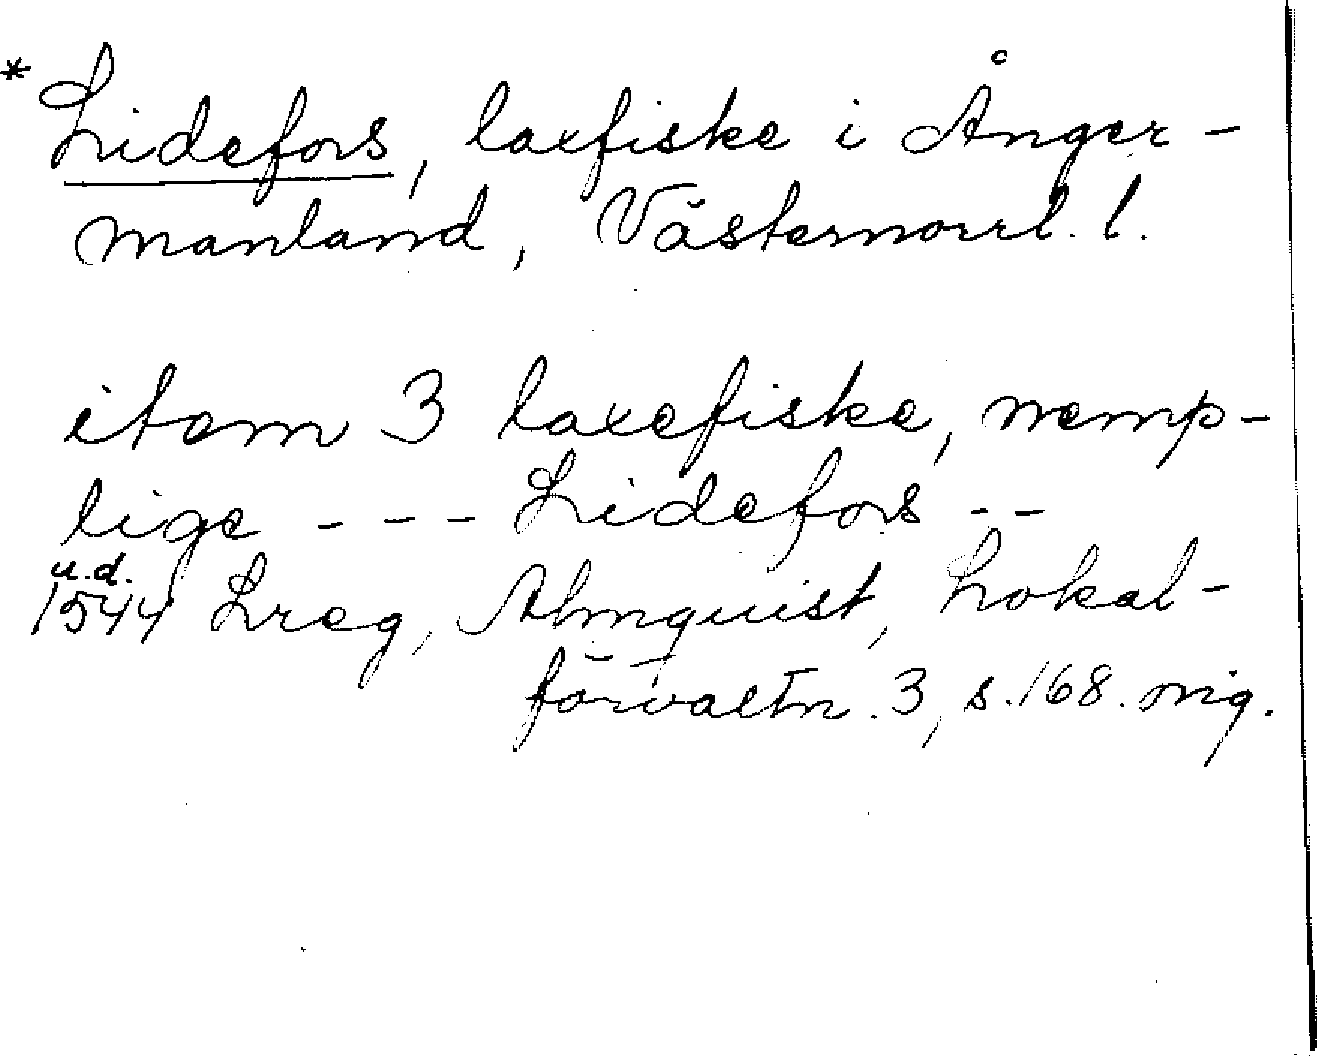 * Lidefors, laxfiske i Ånger-
manland, Västernorrl. l.
item 3 laxefiske, nemp-
lige - - - Lidefors - -
u.d.
1544 Lreg, Almquist, Lokal-
förvaltn. 3, s. 168. orig.